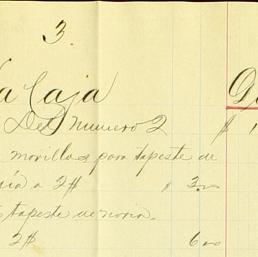 3.
a Caja
Del numero 2 $ 1
morillos para tapeste de
ria a 2$ $ 2.00
tapeste de noria.
2$ 6 00